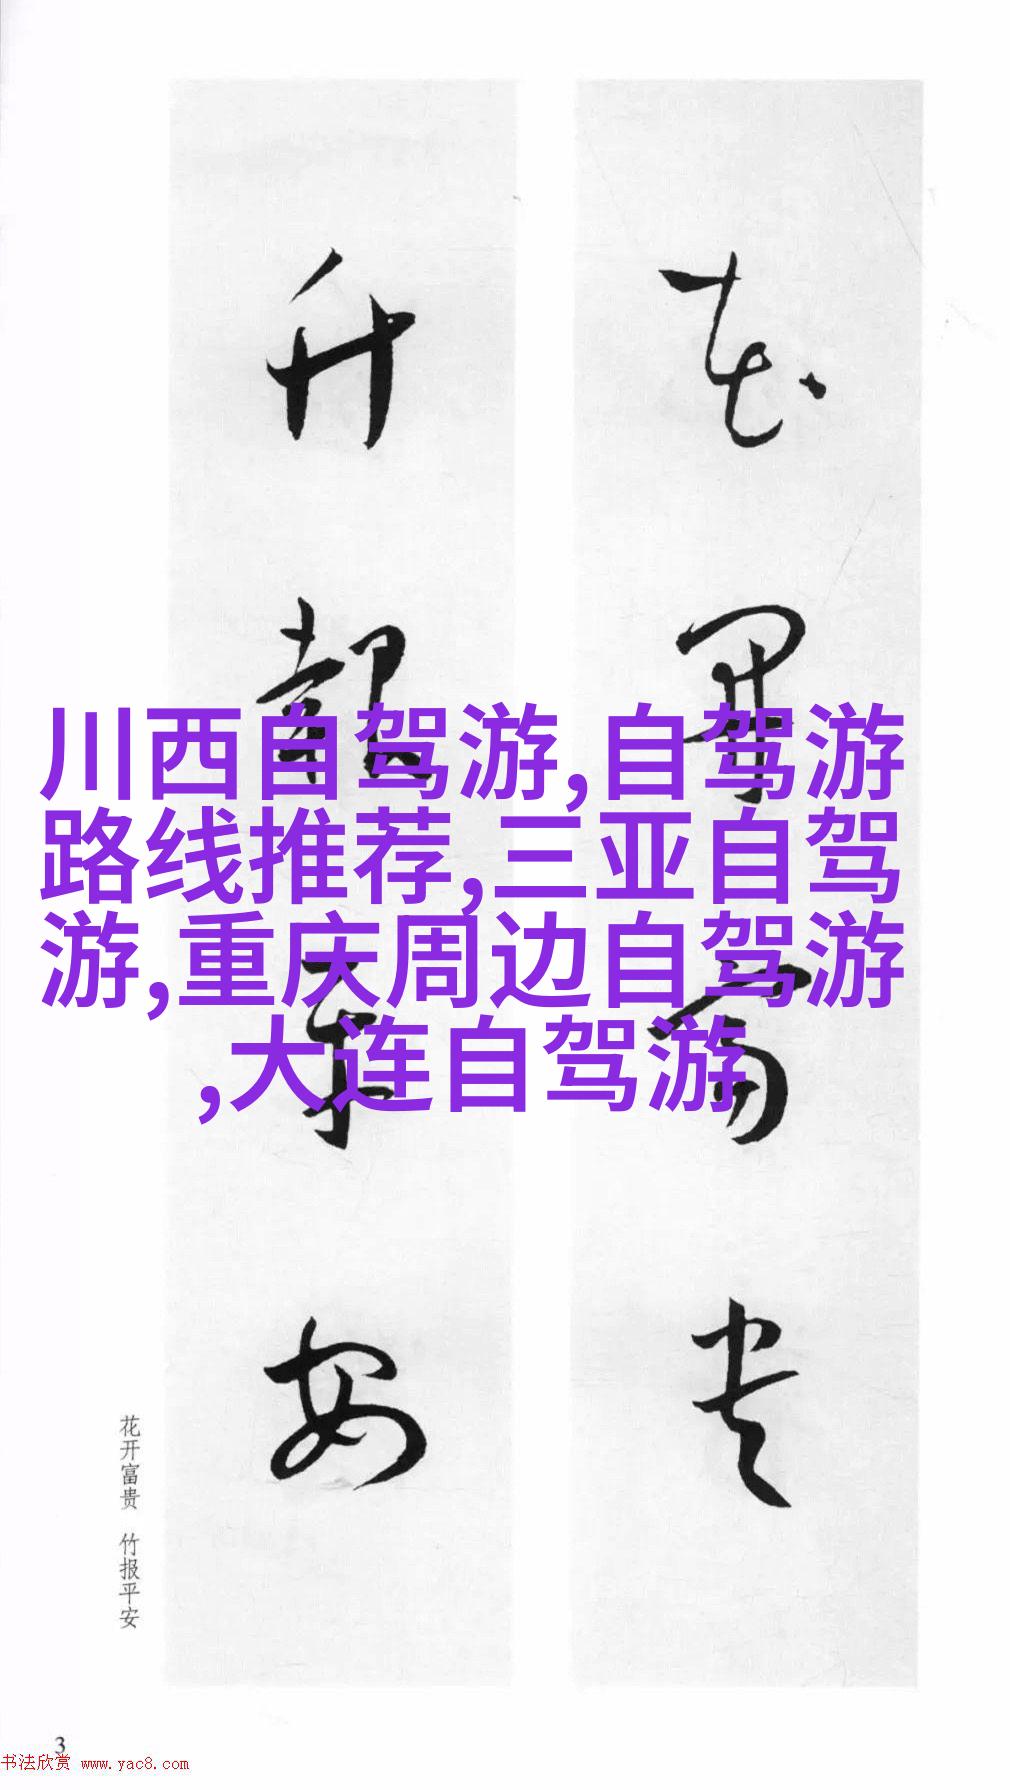 花开富贵
竹报平安
川西自驾游,自驾游
路线推荐,三亚自驾
游,重庆周边自驾游
,大连自驾游
花开富贵 竹报平安
3
书法欣赏 www.yac8.com